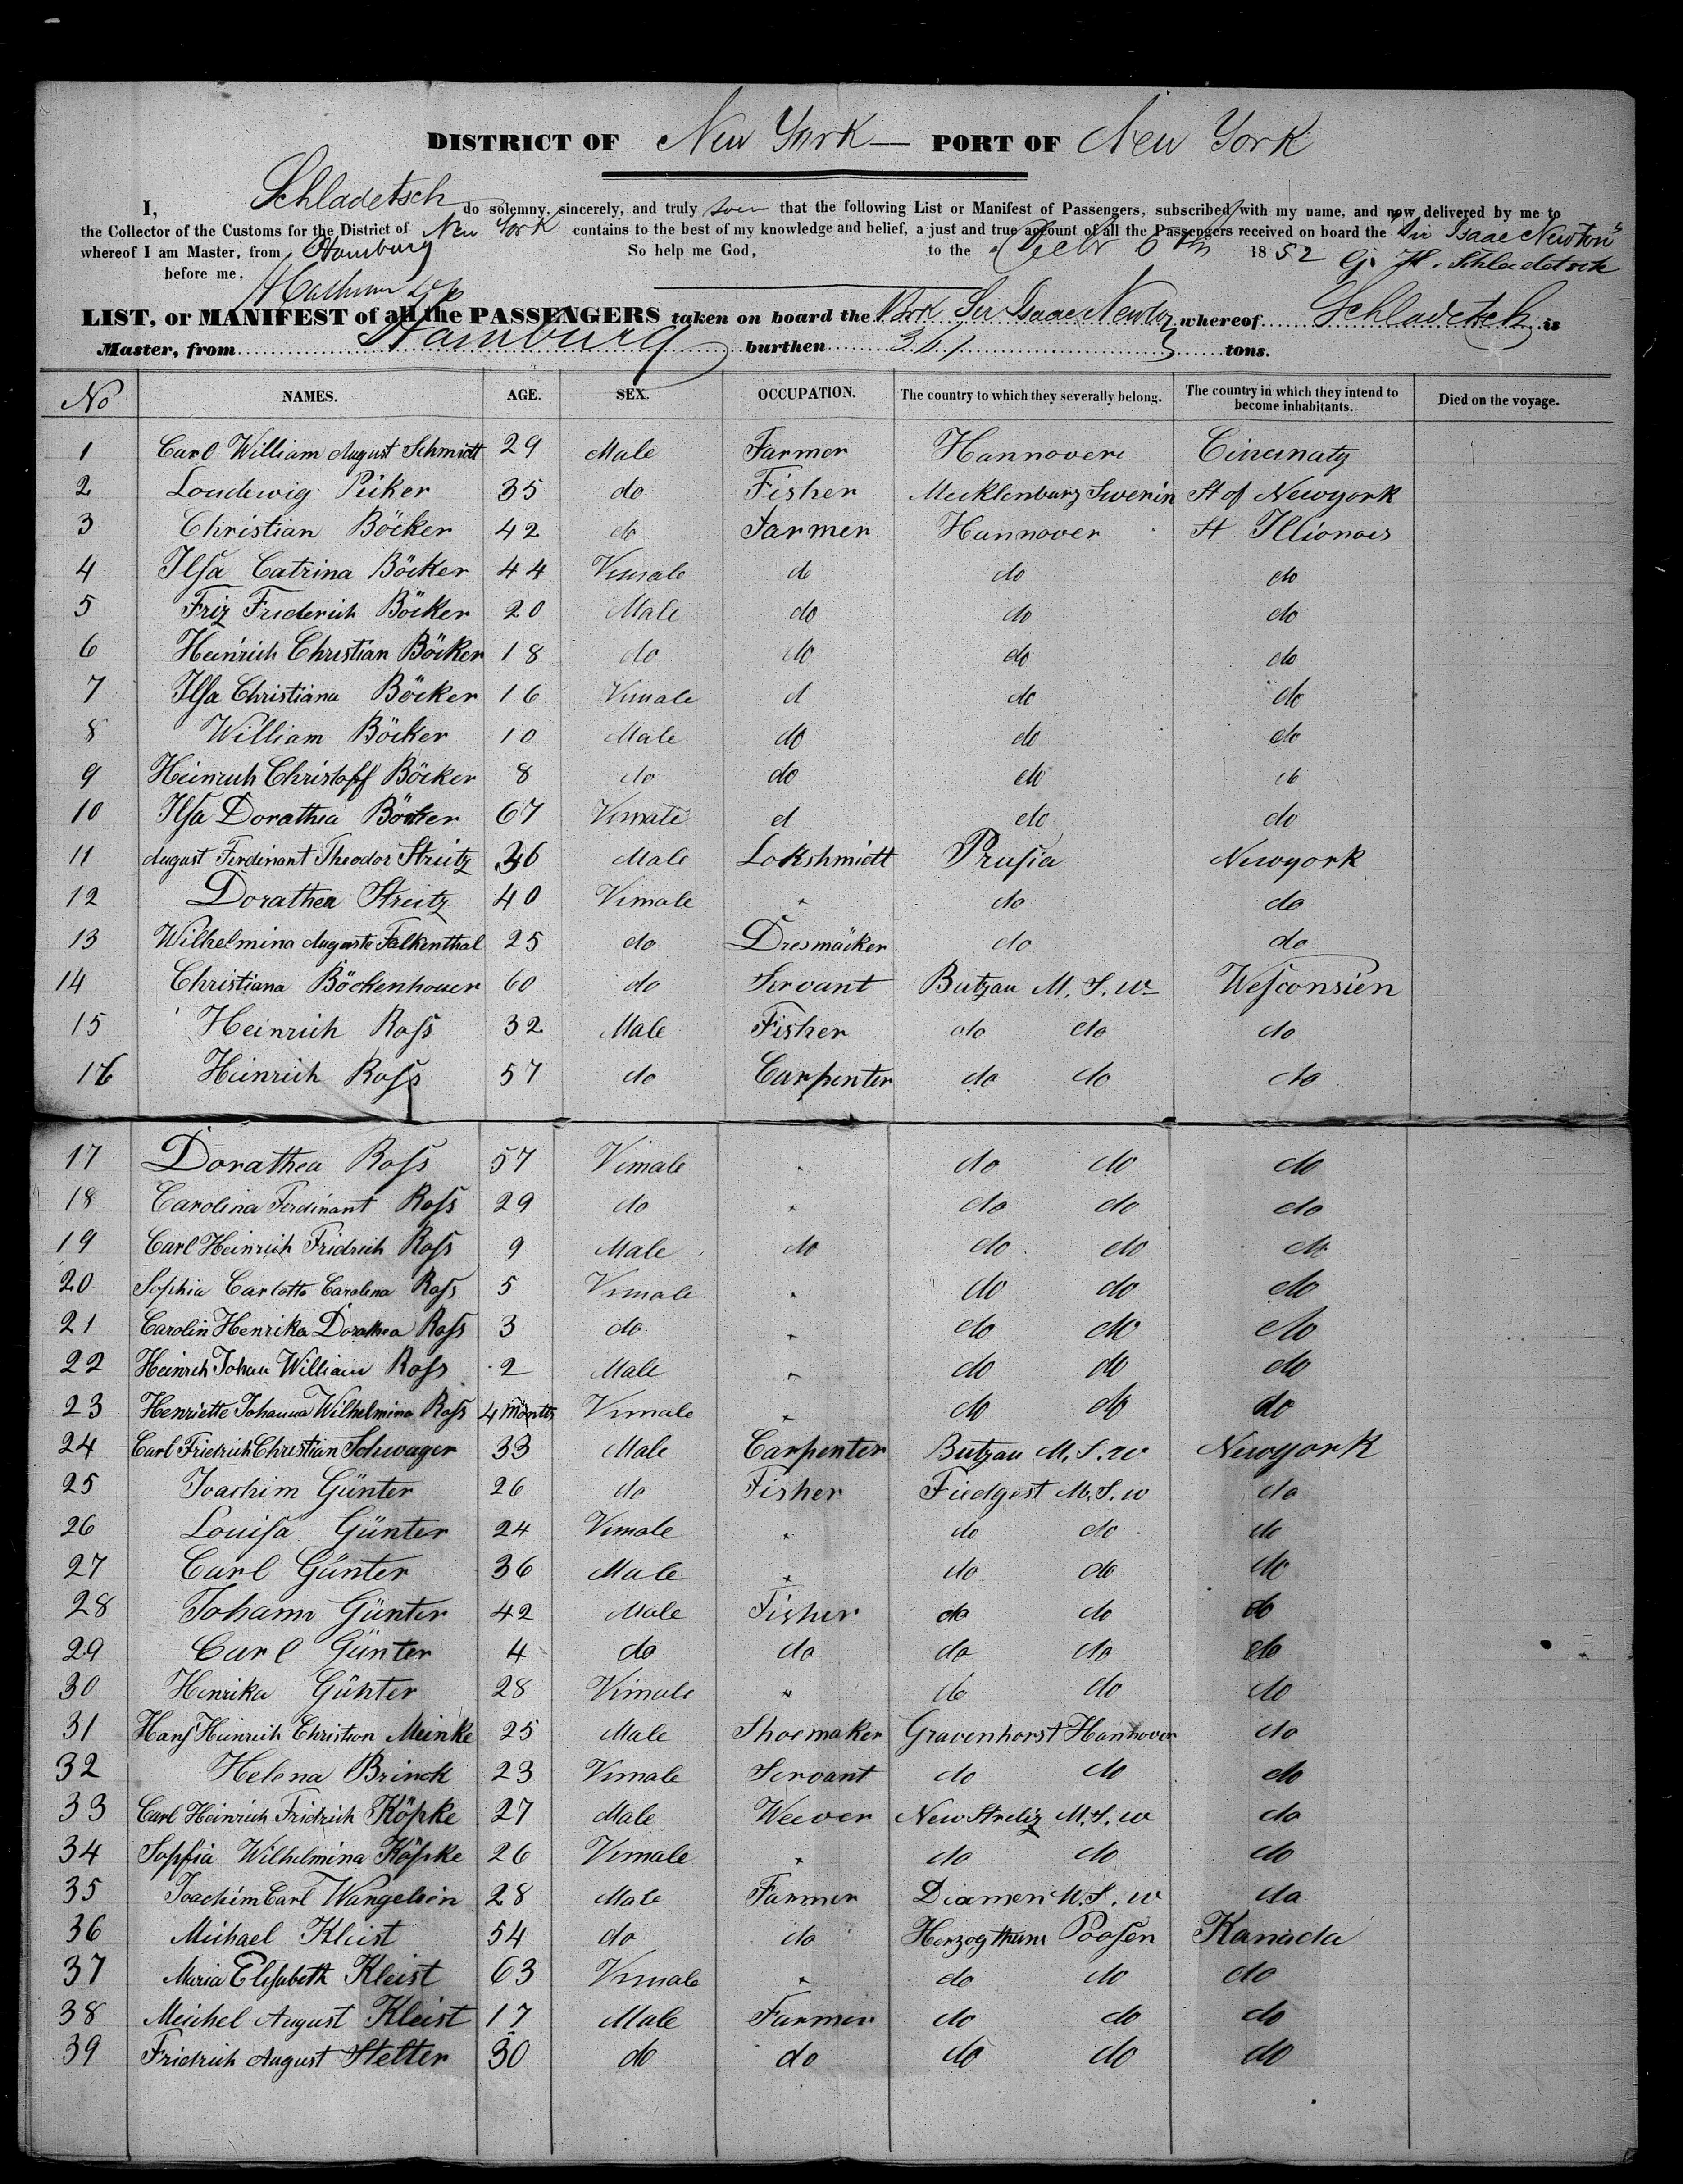 DISTRICT OF New York — PORT OF New York
I, Schladetsch do solemny, sincerely, and truly that the following List or Manifest of Passengers, subscribed with my name, and now delivered by me to
the Collector of the Customs for the District of New York contains to the best of my knowledge and belief, a just and true account of all the Passengers received on board the "Sir Isaac Newton"
whereof I am Master, from Hamburg So help me God, to the 6th 1852 G. H. Schladetsch
before me.
LIST, or MANIFEST of all the PASSENGERS taken on board the Sir Isaac Newton whereof Schladetsch is
Master, from Hamburg burthen 361 tons.
No NAMES. AGE. SEX. OCCUPATION. The country to which they severally belong. The country in which they intend to become inhabitants. Died on the voyage.
1 Carl William August Schmidt 29 Male Farmer Hannover Cincinaty
2 Loudewig Peiker 35 do Fisher Mecklenburg Swerin St of Newyork
3 Christian Böcker 42 do Farmer Hannover St Illionois
4 Ilsa Catrina Böcker 44 Vimale do do do
5 Friz Friderich Böcker 20 Male do do do
6 Heinrich Christian Böcker 18 do do do do
7 Ilsa Christiana Böcker 16 Vimale d do do
8 William Böcker 10 Male do do do
9 Heinrich Christoff Böcker 8 do do do do
10 Ilsa Dorathea Böcker 67 Vimale d do do
11 August Ferdinant Theodor Streitz 36 Male Lokshmidt Prusia Newyork
12 Dorathea Streitz 40 Vimale " do do
13 Wilhelmina Auguste Falkenthal 25 do Dresmäcker do do
14 Christiana Böckenhouer 60 do Servant Butzau M. S. w Wesconsien
15 Heinrich Ross 32 Male Fisher do do do
16 Heinrich Ross 57 do Carpenter do do do
17 Dorathea Ross 57 Vimale " do do do
18 Carolina Ferdinant Ross 29 do " do do do
19 Carl Heinrich Fridrich Ross 9 Male do do do do
20 Sophia Carlotta Carolina Ross 5 Vimale " do do do
21 Carolin Henrika Dorathea Ross 3 do " do do do
22 Heinrich Johan William Ross 2 Male " do do do
23 Henriette Johanna Wilhelmina Ross 4 months Vimale " do do do
24 Carl Friedrich Christian Schwager 33 Male Carpenter Butzau M. S. w Newyork
25 Joachim Günter 26 do Fisher Fiedgest M. S. w do
26 Louisa Günter 24 Vimale " do do do
27 Carl Günter 36 Male " do do do
28 Johann Günter 42 Male Fisher do do do
29 Carl Günter 4 do do do do do
30 Henrika Günter 28 Vimale " do do do
31 Hans Heinrich Christian Meinke 25 Male Shoemaker Gravenhorst Hannover do
32 Helena Brinck 23 Vimale Servant do do do
33 Carl Heinrich Fridrich Köpke 27 Male Weever New Streliz M. S. w do
34 Sopfia Wilhelmina Köpke 26 Vimale " do do do
35 Joachim Carl Wangelien 28 Male Farmer Diamen M. S. w do
36 Michael Kleist 54 do do Herzogthum Poosen Kanada
37 Maria Elisabeth Kleist 63 Vimale " do do do
38 Meichel August Kleist 17 Male Farmer do do do
39 Fridrich August Stelter 30 do do do do do